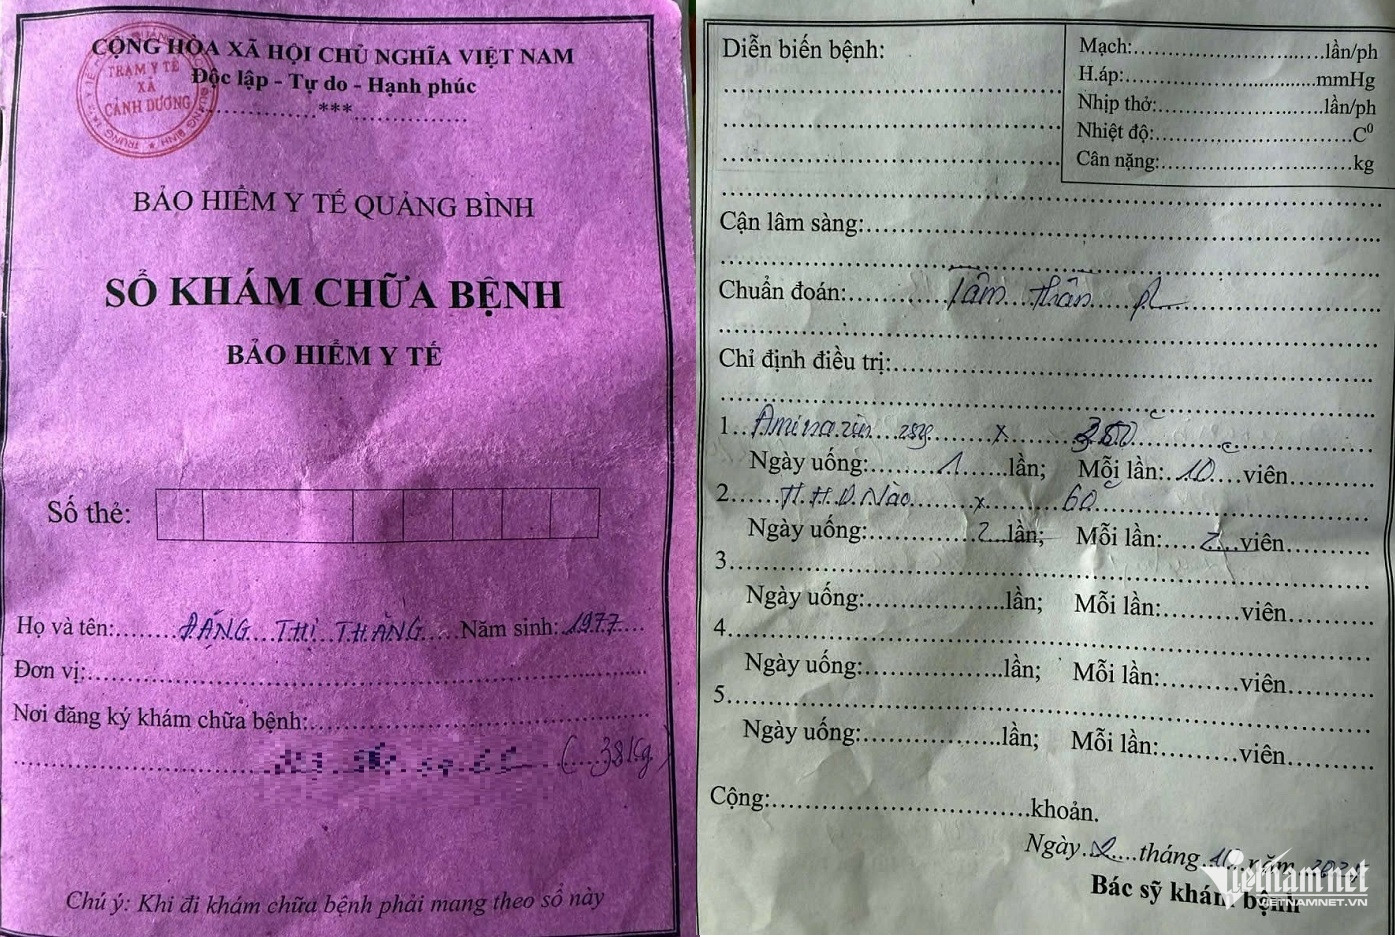 CỘNG HÒA XÃ HỘI CHỦ NGHĨA VIỆT NAM
Độc lập - Tự do - Hạnh phúc
...............***...............
TRẠM Y TẾ
XÃ
CẢNH DƯƠNG
BẢO HIỂM Y TẾ QUẢNG BÌNH
SỔ KHÁM CHỮA BỆNH
BẢO HIỂM Y TẾ
Số thẻ:
Họ và tên:.......ĐẶNG...THỊ THẮNG....Năm sinh:.1977....
Đơn vị:
Nơi đăng ký khám chữa bệnh:
(38kg)
Chú ý: Khi đi khám chữa bệnh phải mang theo sổ này
Diễn biến bệnh:
Mạch:..........lần/ph
H.áp:..........mmHg
Nhịp thở:..........lần/ph
Nhiệt độ:..........C⁰
Cân nặng:..........kg
Cận lâm sàng:
Chuẩn đoán:..........Tâm thần PL
Chỉ định điều trị:
1...Aminazin 25mg x
Ngày uống:........1......lần; Mỗi lần:..10....viên
2.....H.H.D.Não.....x......60
Ngày uống:..........2..lần; Mỗi lần:....2...viên
3
Ngày uống:..........lần; Mỗi lần:..........viên
4
Ngày uống:..........lần; Mỗi lần:..........viên
5
Ngày uống:..........lần; Mỗi lần:..........viên
Cộng:..........khoản.
Ngày......tháng..10..năm
Bác sỹ khám bệnh
Vietnamnet
VIETNAMNET.VN